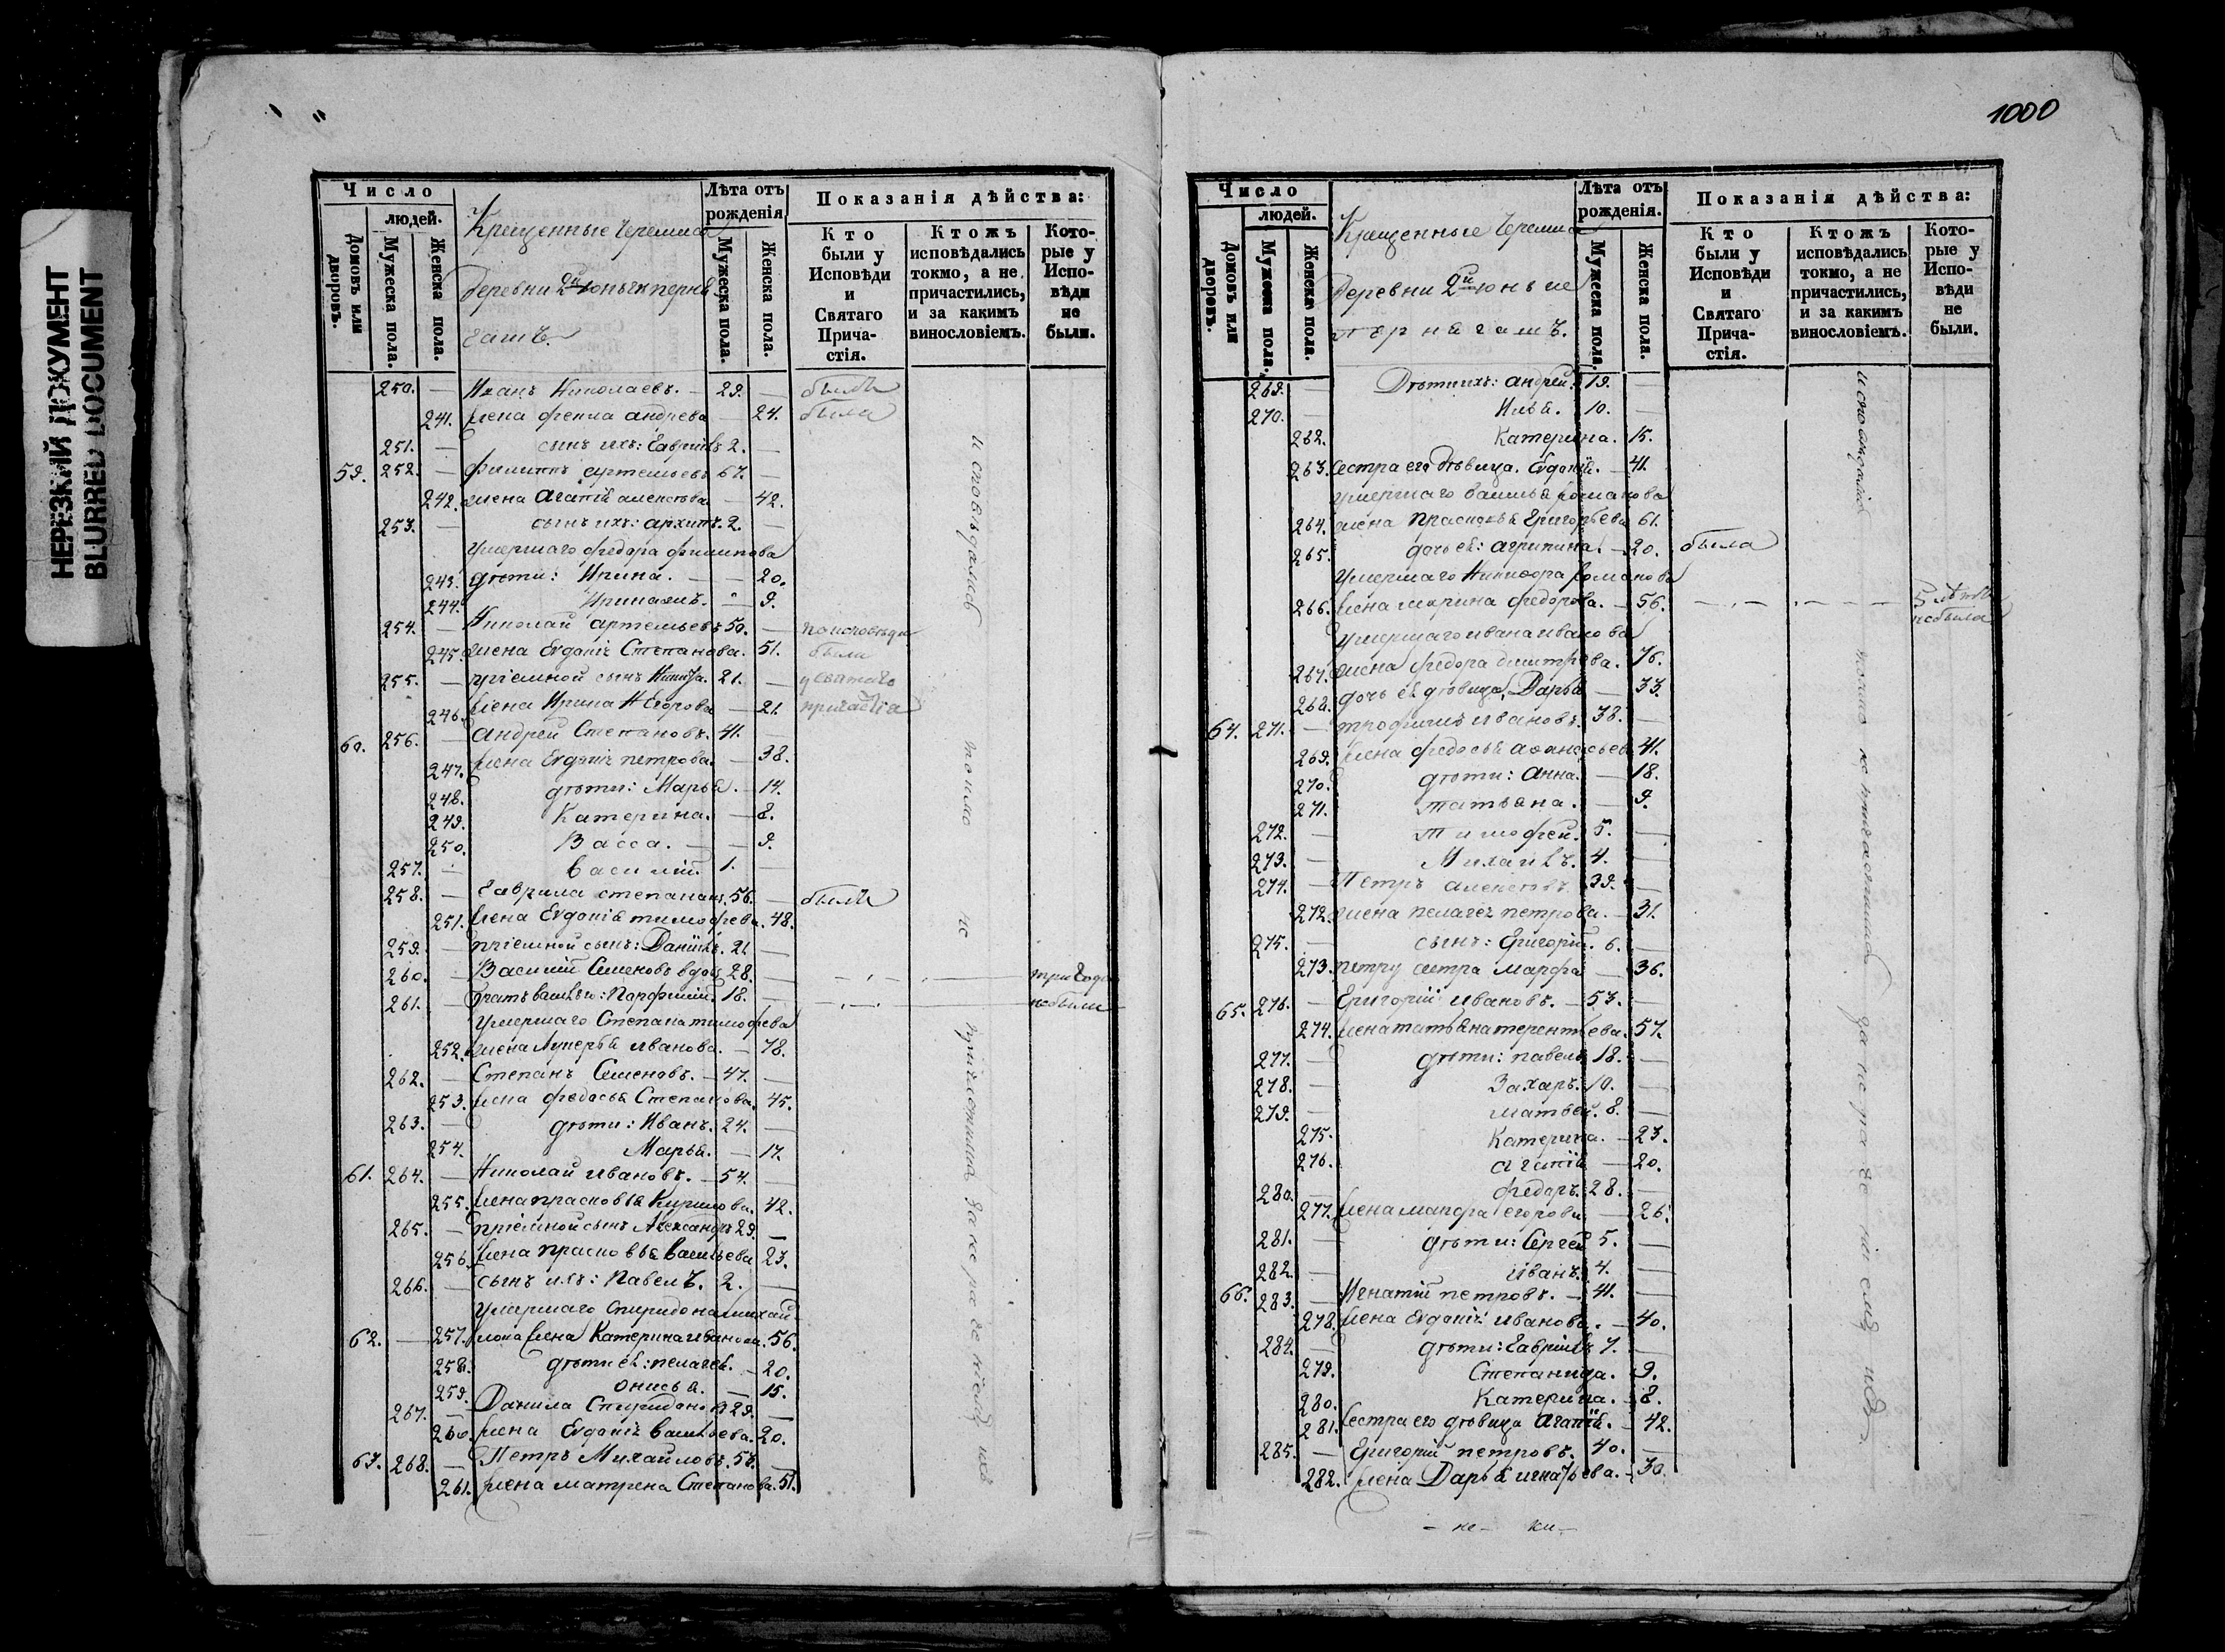 НЕРЕЗКИЙ ДОКУМЕНТ
BLURRED DOCUMENT
Число
людей.
Домовъ или дворовъ.
Мужеска пола.
Женска пола.
Крещенные Черемиса
деревни 2й
гашъ.
Лѣта отъ рожденія
Мужеска пола.
Женска пола.
Показанія дѣйства:
Кто были у Исповѣди и Святаго Прича-стія.
Ктожъ исповѣдались токмо, а не причастились, и за какимъ винословіемъ.
Кото-рые у Испо-вѣди не были.
250. — Иванъ Николаевъ. — 29. — былъ
241. жена андрева — 24. была
251. — сынъ ихъ: Гаврiилъ 2. —
59. 252. — Филиппъ артемьевъ 67. —
242. жена Агапiя алексѣева — 42.
253. — сынъ ихъ: архипъ. 2. —
умершаго федора филипова
243. дѣти: Ирина. — — 20.
244. — 9.
254. — Николай артемьевъ 59. — по исповѣди
245. жена Евдокiя Степанова. 51. были
255. — прiемной сынъ 21. — у святаго
246. жена Ирина Егорова — 21. причастiя
60. 256. — андрей Степановъ. 41. —
247. жена Евдокiя петрова. — 38.
248. дѣти: Марья. — 14.
249. Катерина. — 8.
250. Васса. — — 9.
257. — василiй. 1. —
258. — Гаврила степановъ. 56. — былъ
251. жена Евдокiя тимофеева. 48.
259. — прiемной сынъ: Данiилъ. 21. —
260. — Василiй Семеновъ вдовъ 28. — три года
261. — братъ: Парфенiй. 18. — не были
умершаго Степана тимофеева
252. жена Лукерья иванова. — 78.
262. — Степанъ Семеновъ. — 47. —
253. жена федосья Степанова. 45.
263. — дѣти: Иванъ. 24. —
254. Марья. — 17.
61. 264. — Николай ивановъ. — 54. —
255. жена прасковья Кирилова. 42.
265. — прiемной сынъ Александръ 29. —
256. жена прасковья васильева 23.
266. — сынъ ихъ: Павелъ. 2. —
умершаго Спиридона михай
62. — 257. лова жена Катерина иванова. 56.
258. дѣти ея: пелагея. — 20.
259. онисья. — 15.
267. — Данила Спиридоновъ 29. —
260. жена Евдокiя васильева. 20.
63. 268. — Петръ Михайловъ. 53. —
261. жена матрена Степанова. 51.
исповѣдались токмо не причастились за нерасченiемъ ихъ
1000
Число
людей.
Домовъ или дворовъ.
Мужеска пола.
Женска пола.
Крещенные Черемиса
деревни 2й юнъ ие
пернягашъ.
Лѣта отъ рожденія.
Мужеска пола.
Женска пола.
Показанія дѣйства:
Кто были у Исповѣди и Святаго Прича-стія.
Ктожъ исповѣдались токмо, а не причастились, и за какимъ винословіемъ.
Кото-рые у Испо-вѣди не были.
269. — Дѣти ихъ: андрей. 19. —
270. — Илья. 10. —
262. Катерина. 15.
263. Сестра его дѣвица. Евдокiя. — 41.
умершаго василья романова
264. жена прасковья Григорьева 61.
265. дочь ея: агрипина. — 20. была
умершаго Никифора романова
266. жена марина федорова. — 56. 5 лѣтъ не была
умершаго ивана иванова
267. жена федора дмитрева. 76.
268. дочь ея дѣвица, Дарья — 33.
64. 271. — трофимъ ивановъ. 38. —
269. жена федосья афанасьева 41.
270. дѣти: анна. — 18.
271. татьяна. — 9.
272. — тимофей. 5. —
273. — Михаилъ. 4. —
274. — Петръ алексѣевъ. 39. —
272. жена пелагея петрова. — 31.
275. — сынъ: Григорiй. 6. —
273. петру сестра марфа — 36.
65. 276. — Григорiй ивановъ. — 53. —
274. жена татьяна терентьева. 57.
277. — дѣти: павелъ 18. —
278. — Захаръ. 10. —
279. — матвей. 8. —
275. Катерина. — 23.
276. агапiя — 20.
280. — федоръ. 28. —
277. жена марфа егорова — 26.
281. — дѣти: Сергей 5. —
282. — иванъ. 4. —
66. 283. — Игнатiй петровъ. — 41. —
278. жена Евдокiя иванова. — 40.
284. — дѣти: Гаврiилъ 7. —
279. Степанида. 9.
280. Катерина. — 8.
281. Сестра его дѣвица Агапiя. — 42.
285. — Григорiй петровъ. 40. —
282. жена Дарья игнатьева. — 30.
исповѣдались токмо не причастились
— не — ки —